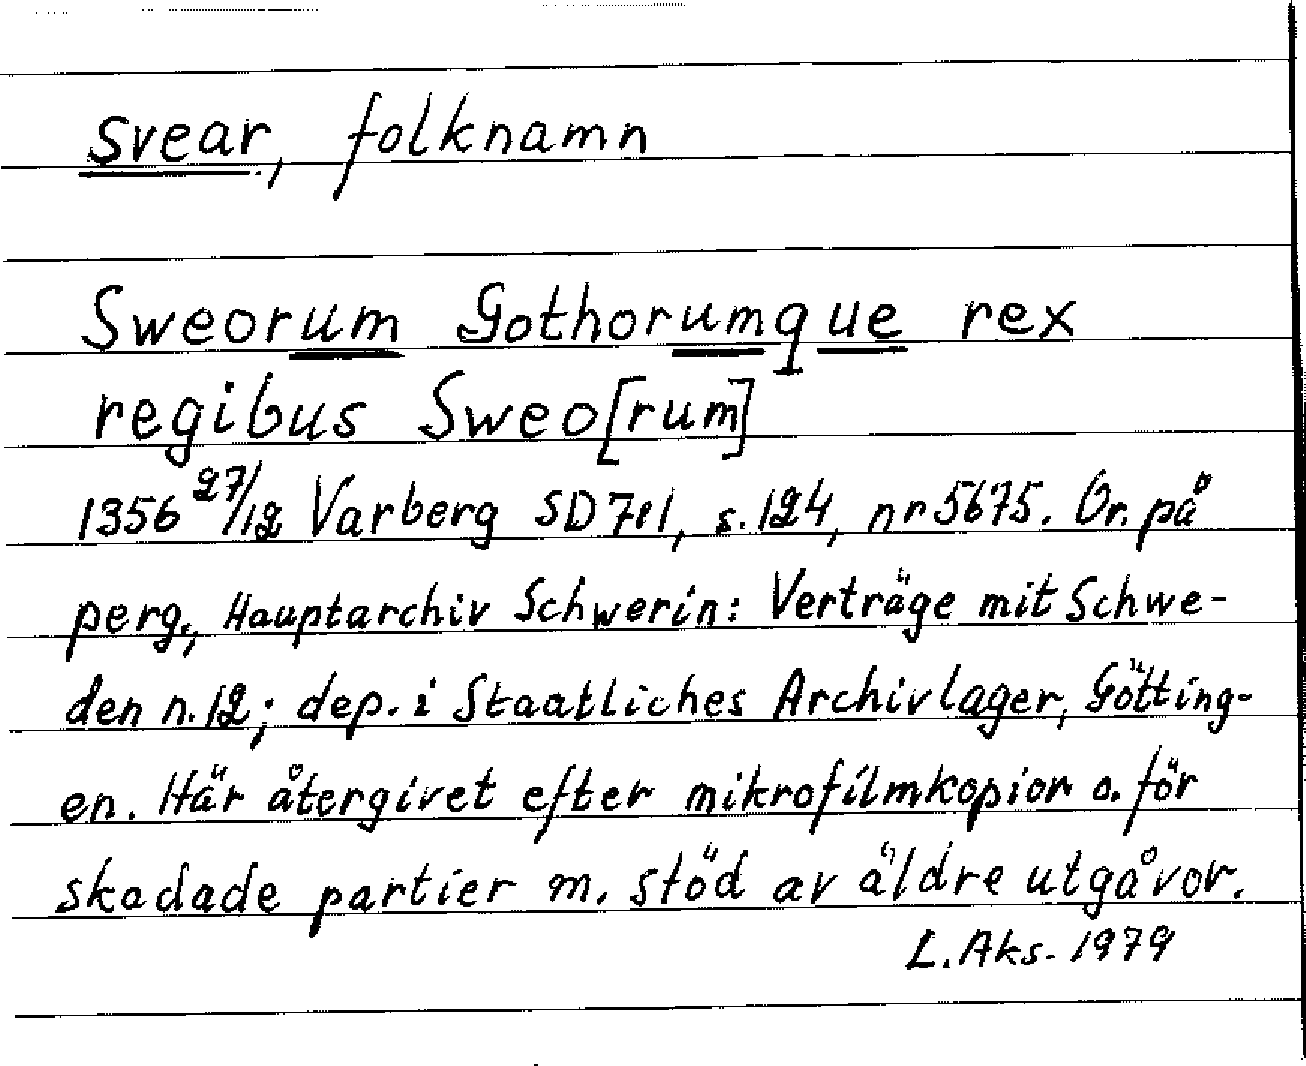 Svear, folknamn
Sweorum Gothorumque rex
regibus Sweo[rum]
1356 27/12 Varberg SD 7:1, s. 124, nr 5675. Or. på
perg., Hauptarchiv Schwerin: Verträge mit Schwe-
den n. 12; dep. i Staatliches Archivlager, Götting-
en. Här återgivet efter mikrofilmkopior o. för
skadade partier m. stöd av äldre utgåvor.
L. Aks. 1979